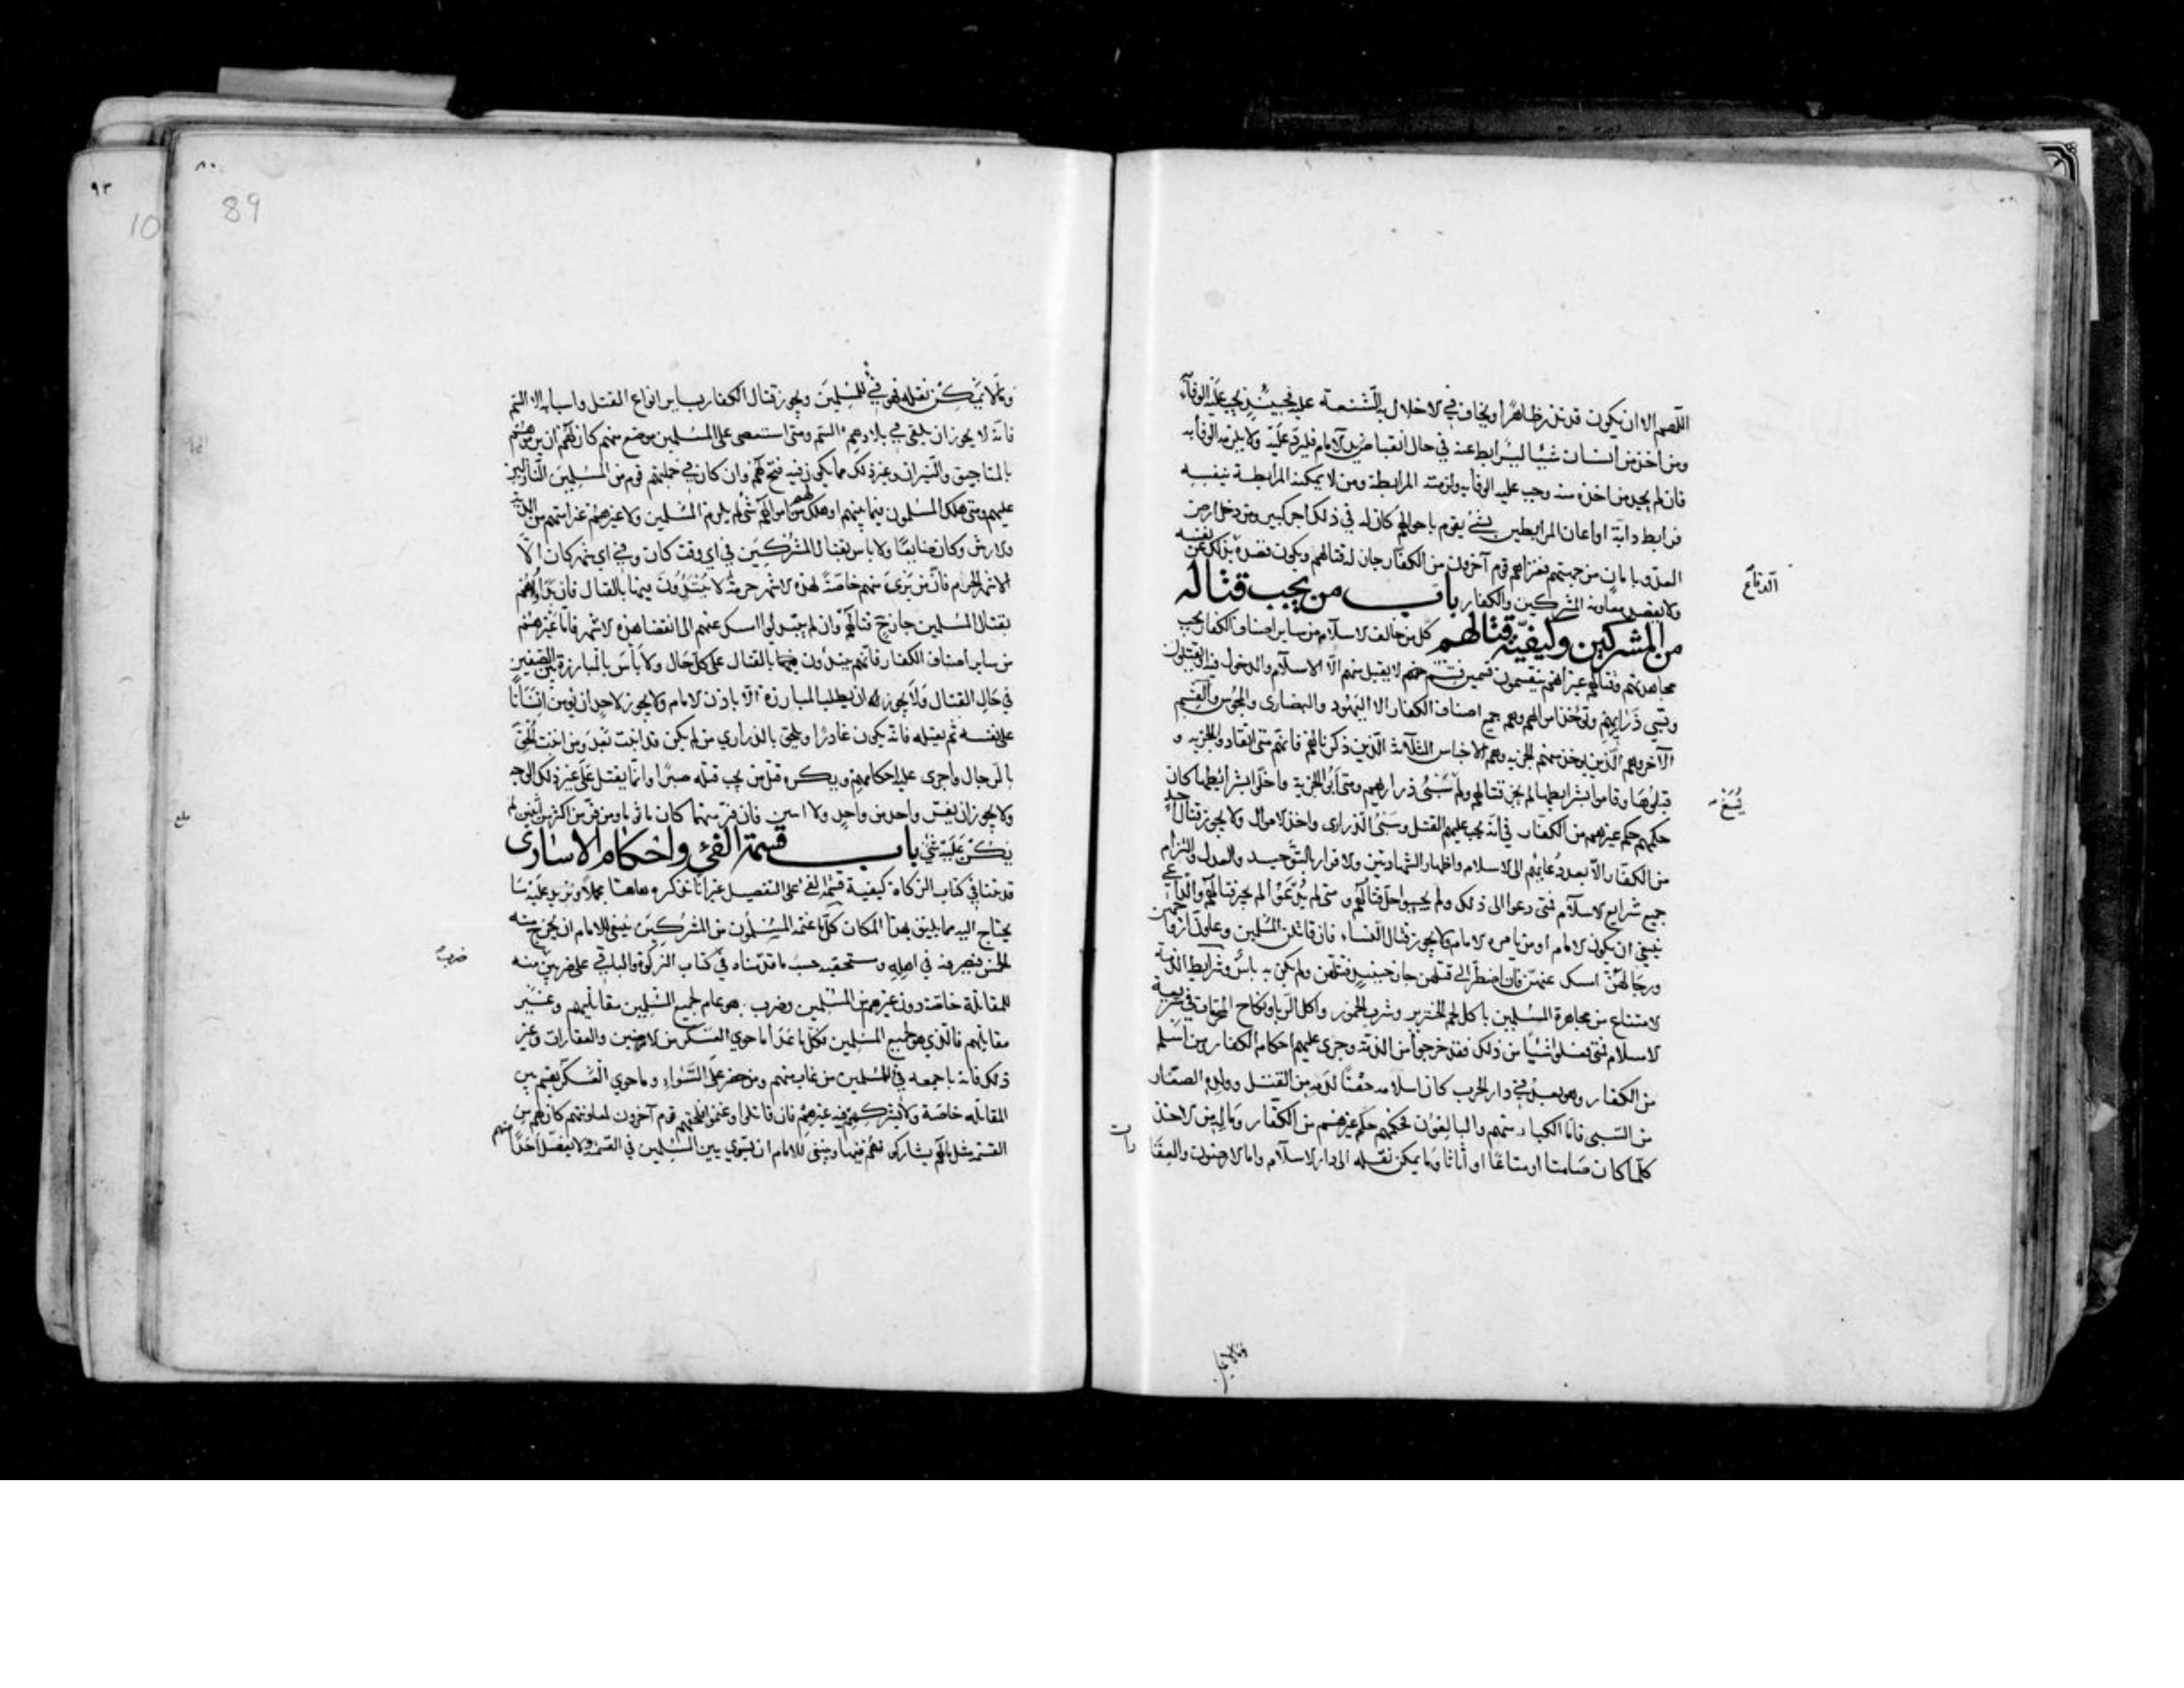 اللّهم الا ان يكون قد نذر ظاهرا ويخاف في الاخلال به الشنعة عليه فحينئذ يجب عليه الوفاء
ومن اخذ من انسان شيئا ليرابط عنه في حال انقباض يد الامام فليرده عليه ولا يلزمه الوفا به
فان لم يجد من اخذه منه وجب عليه الوفا به ولزمته المرابطة ومن لا يمكنه المرابطة بنفسه
فرابط دابة او اعان المرابطين بشئ يقوم باحوالهم كان له في ذلك اجر كبير ومن دخل ارض
العدو بامان من جهتهم فغزاهم قوم آخرون من الكفار جاز له قتالهم ويكون قصده بذلك عن نفسه
الدفاع
ولا يقصد معاونة المشركين والكفار باب من يجب قتاله
من المشركين وكيفية قتالهم كل من خالف الاسلام من ساير اصناف الكفار يجب
مجاهدتهم وقتالهم غير انهم ينقسمون قسمين قسم منهم لا يقبل منهم الا الاسلام والدخول فيه او يقتلون
وتسبي ذراريهم وتؤخذ اموالهم وهم جميع اصناف الكفار الا اليهود والنصارى والمجوس والقسم
الآخر وهم الذين يؤخذ منهم الجزيه وهم الاجناس الثلاثة الذين ذكرناهم فانهم متى انقادوا للجزيه و
قبلوها وقاموا بشرايطها لم يجز قتالهم ولم تسبى ذراريهم ومتى ابوا الجزية واخلوا بشرائطها كان
حكمهم حكم غيرهم من الكفار في انه يجب عليهم القتل وسبى الذراري واخذ الاموال ولا يجوز قتال احد
من الكفار الا بعد دعائهم الى الاسلام واظهار الشهادتين والاقرار بالتوحيد والعدل والتزام
جميع شرايع الاسلام فمتى دعوا الى ذلك ولم يجيبوا حل قتالهم ومتى لم يدعوا لم يجز قتالهم والداعي
ينبغي ان يكون الامام او من يامره الامام ولا يجوز قتال النساء فان قاتلن المسلمين وعاون ازواجهن
ورجالهن امسك عنهن فان اضطر الى قتلهن جاز حينئذ قتلهن ولم يكن به باس وشرايط الذمة
الامتناع من مجاهرة المسلمين باكل لحم الخنزير وشرب الخمور واكل الربا ونكاح المحرمات في شريعة
الاسلام فمتى فعلوا شيئا من ذلك فقد خرجوا من الذمة وجرى عليهم احكام الكفار ومن اسلم
من الكفار وهو بعد في دار الحرب كان اسلامه حقنا لدمه من القتل وولده الصغار
من السبى فاما الكبار منهم والبالغون فحكمهم حكم غيرهم من الكفار وماله من الاخذ
كلما كان صامتا او متاعا او اثاثا وما يمكن نقله الى دار الاسلام واما الارضون والعقا
رات
ومالا يمكن نقله فهو فئ للمسلمين ويجوز قتال الكفار بساير انواع القتل واسبابه الا السم
فانه لا يجوز ان يلقى في بلادهم السم ومتى استعصى على المسلمين موضع منهم كان لهم ان يرموهم
بالمناجيق والنيران وغير ذلك مما يكون فيه فتح لهم وان كان في جملتهم قوم من المسلمين النازلين
عليهم ومتى هلك المسلمون فيما بينهم او هلك لهم من اموالهم شئ لم يلزم المسلمين ولا غيرهم غرامتهم من الدية
والارش وكان ضايعا ولا باس بقتال المشركين في اي وقت كان وفي اي شهر كان الا
الاشهر الحرم فان من يرى منهم خاصة لهذه الاشهر حرمة لا يبتدؤن فيها بالقتال فان بداوهم
بقتال المسلمين جاز ح قتالهم وان لم يبتدلوا امسك عنهم الى انقضا هذه الاشهر فاما غيرهم
من ساير اصناف الكفار فانهم يبتدؤن فيها بالقتال على كل حال ولا باس بالمبارزة بين الصفين
في حال القتال ولا يجوز له ان يطلب المبارزة الا باذن الامام ولا يجوز لاحد ان يؤمن انسانا
على نفسه ثم يقتله فانه يكون غادرا ويلحق بالذراري من لم يكن قد انبت بعد ومن انبت الحق
بالرجال واجرى عليه احكامهم ويكره قتل من يجب قتله صبرا وانما يقتل على غير ذلك الوجه
ولا يجوز ان يفر واحد من واحد ولا اثنين فان فر منهما كان ماثوما ومن فر من اكثر من اثنين لم
يكن عليه شئ باب قسمة الفئ واحكام الاسارى
قد بينا في كتاب الزكاة كيفية قسمة الفئ على التفصيل غير انا نذكره هاهنا مجملا ونزيد عليه ما
يحتاج اليه مما يليق بهذا المكان كل ما غنمه المسلمون من المشركين ينبغى للامام ان يخرج منه
الخمس فيصرفه في اهله ومستحقيه حسب ما قدمناه في كتاب الزكوة والباقي على ضربين منه
ضرب
للمقاتلة خاصة دون غيرهم من المسلمين وضرب هو عام لجميع المسلمين مقاتليهم وغير
مقاتليهم فالذي هو لجميع المسلمين فكل ما عدا ما حوي العسكر من الارضين والعقارات وغير
ذلك فانه باجمعه فئ للمسلمين من غاب منهم ومن حضر على السواء وما حوي العسكر يقسم بين
المقاتله خاصة ولا يشركهم فيه غيرهم فان قاتلوا وغنموا فلحقهم قوم آخرون لمعاونتهم كان لهم من
القسم مثل مالهم يشاركونهم فيها وينبغى للامام ان يسوي بين المسلمين في القسم ولا يفضل احدا منهم
٨٠
89
٩٣
10